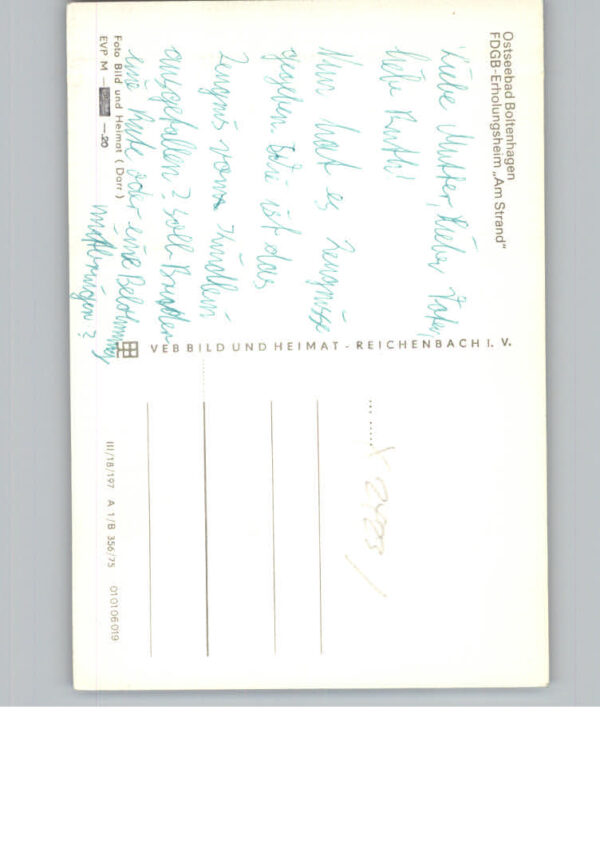 Ostseebad Boltenhagen
FDGB-Erholungsheim „Am Strand"
Liebe Mutter, lieber Vater,
liebe Ruth!
Nun hat es Zeugnisse
gegeben. Wie ist das
Zeugnis vom Kindlein
ausgefallen? Soll Bruder
eine Rute oder eine Belohnung
mitbringen?
Foto Bild und Heimat (Darr)
EVP M — —.20
VEB BILD UND HEIMAT - REICHENBACH I. V.
III/18/197 A 1/B 356/75 01 01 06 019